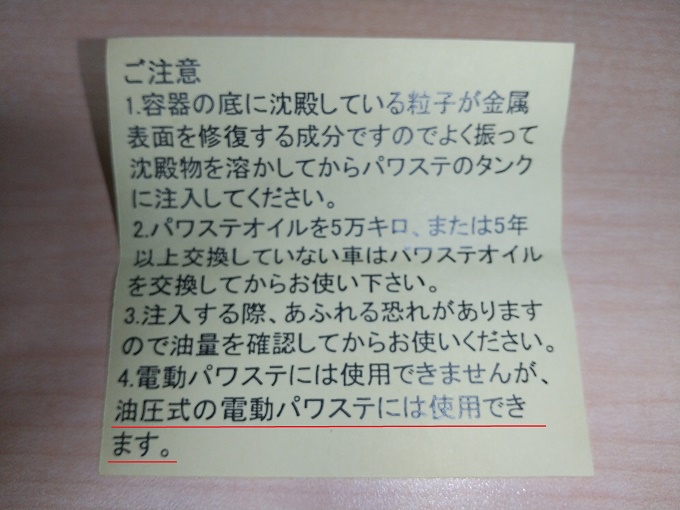 ご注意
1.容器の底に沈殿している粒子が金属
表面を修復する成分ですのでよく振って
沈殿物を溶かしてからパワステのタンク
に注入してください。
2.パワステオイルを5万キロ、または5年
以上交換していない車はパワステオイル
を交換してからお使い下さい。
3.注入する際、あふれる恐れがあります
ので油量を確認してからお使いください。
4.電動パワステには使用できませんが、
油圧式の電動パワステには使用でき
ます。